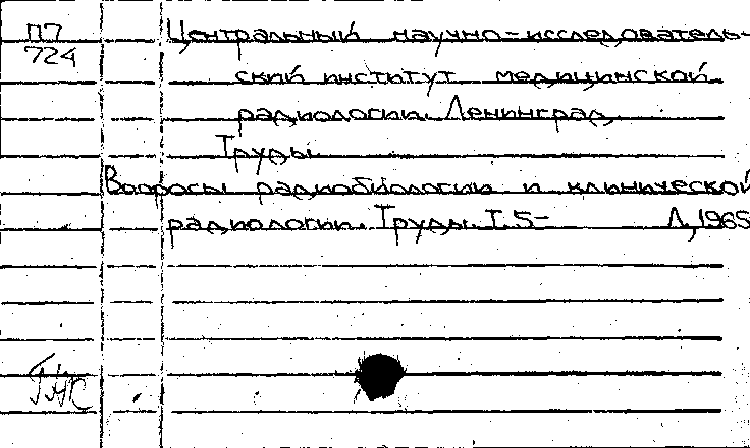 П7 Центральный научно-исследователь-
724
ский институт медицинской
радиологии. Ленинград.
Труды
Вопросы радиобиологии и клинической
радиологии. Труды. Т. 5- Л., 1965